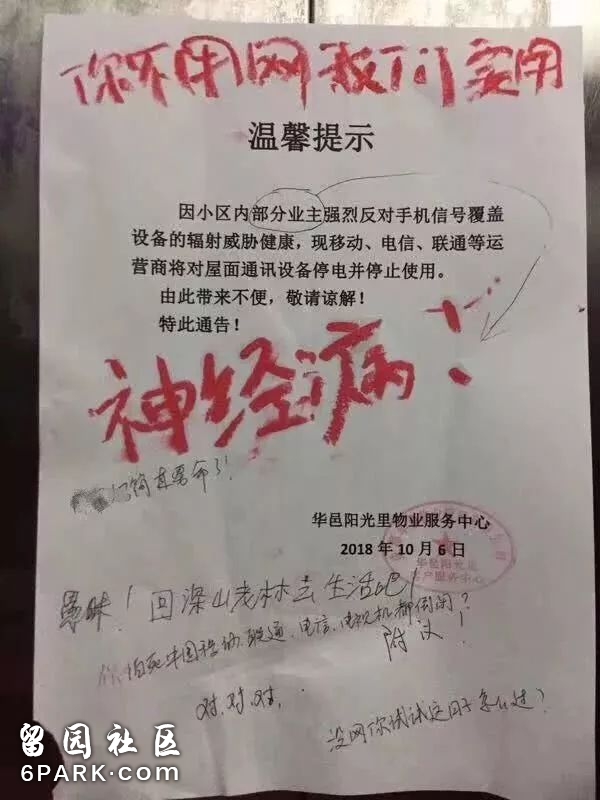 你不用网我们实用
温馨提示
因小区内部分业主强烈反对手机信号覆盖
设备的辐射威胁健康，现移动、电信、联通等运
营商将对屋面通讯设备停电并停止使用。
由此带来不便，敬请谅解！
特此通告！
神经病！
简直要命了！
华邑阳光里物业服务中心
2018年10月6日
华邑阳光里
服务中心
愚昧！回深山老林去生活吧！
你怕死中国移动、联通、电信、电视机都倒闭？
附议！
对、对、对、
没网你试试这日子怎么过？
留园社区
6PARK.COM